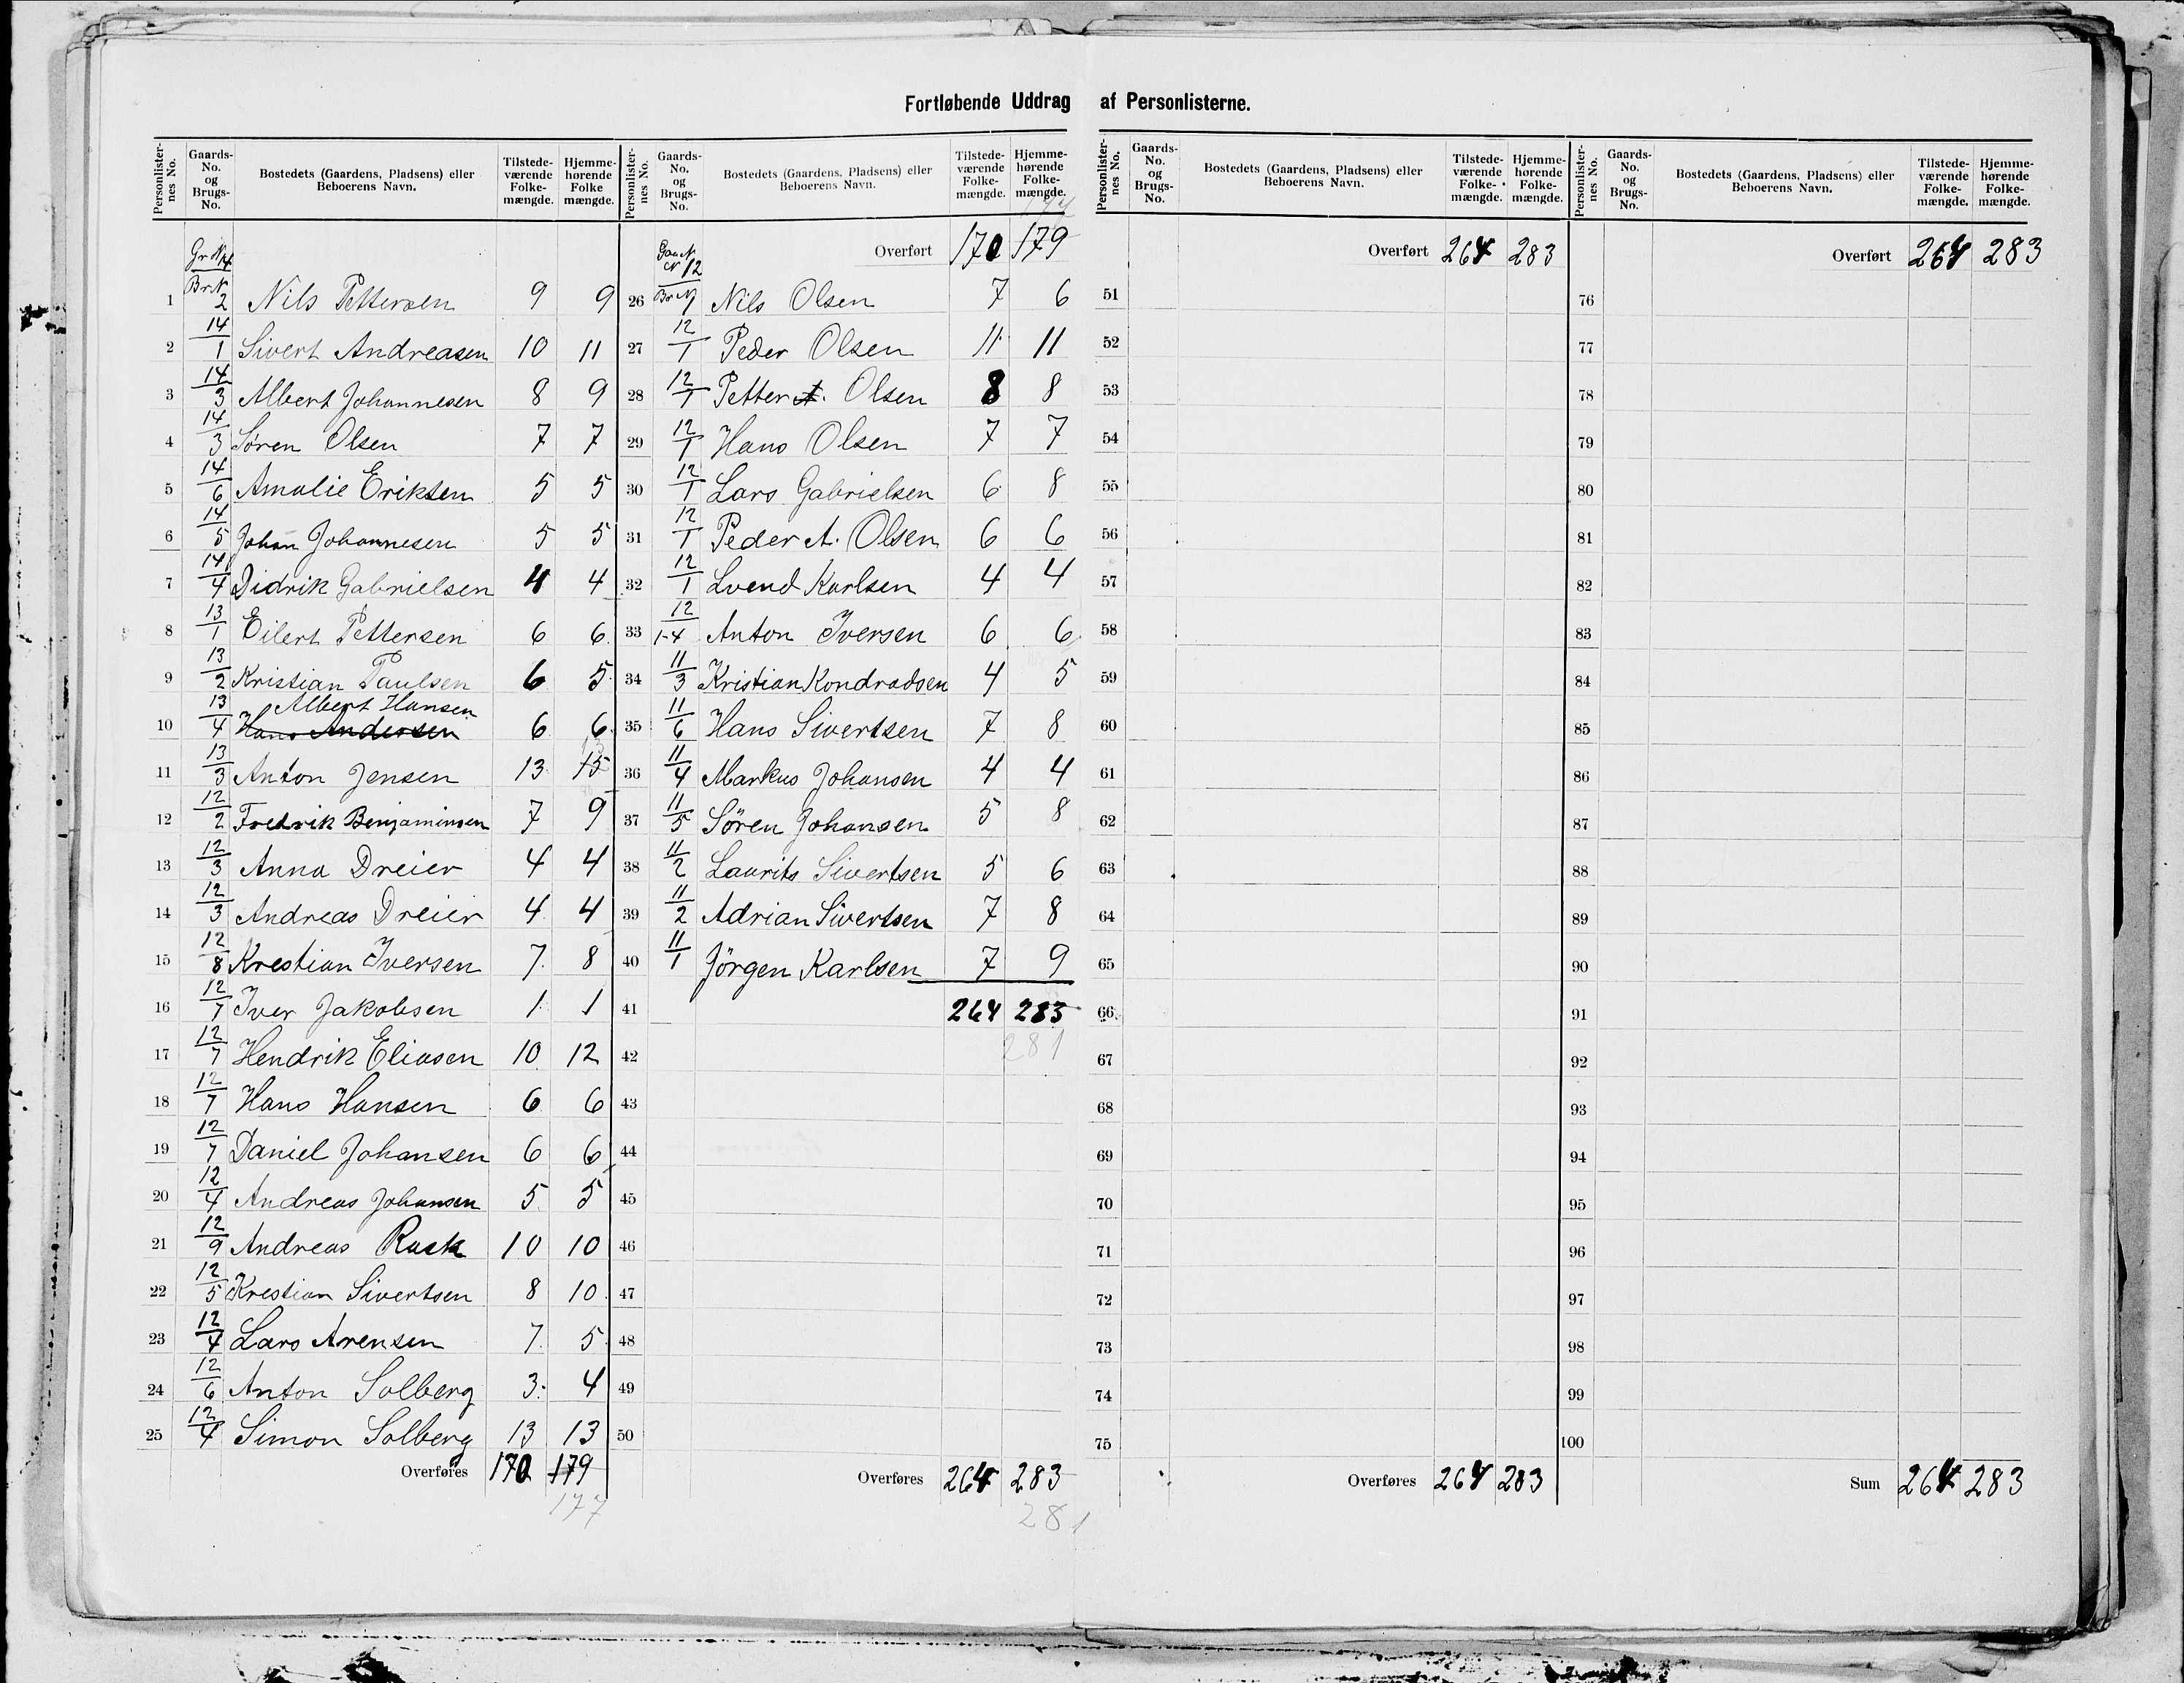 Fortløbende Uddrag af Personlisterne.
Personlister-nes No. | Gaards-No. og Brugs-No. | Bostedets (Gaardens, Pladsens) eller Beboerens Navn. | Tilstede-værende Folke-mængde. | Hjemme-hørende Folke mængde.
Gr N 14
Br N
1 | 2 | Nils Pettersen | 9 | 9
2 | 14/1 | Sivert Andreasen | 10 | 11
3 | 14/3 | Albert Johannesen | 8 | 9
4 | 14/3 | Søren Olsen | 7 | 7
5 | 14/6 | Amalie Eriksen | 5 | 5
6 | 14/5 | Johan Johannesen | 5 | 5
7 | 14/4 | Didrik Gabrielsen | 4 | 4
8 | 13/1 | Eilert Pettersen | 6 | 6
9 | 13/2 | Kristian Paulsen | 6 | 5
Albert Hansen
10 | 13/4 | Hans Andersen | 6 | 6
11 | 13/3 | Anton Jensen | 13 | 15 13
12 | 12/2 | Fredrik Benjaminsen | 7 | 9
13 | 12/3 | Anna Dreier | 4 | 4
14 | 12/3 | Andreas Dreier | 4 | 4
15 | 12/8 | Krestian Iversen | 7 | 8
16 | 12/7 | Iver Jakobsen | 1 | 1
17 | 12/7 | Hendrik Eliasen | 10 | 12
18 | 12/7 | Hans Hansen | 6 | 6
19 | 12/7 | Daniel Johansen | 6 | 6
20 | 12/4 | Andreas Johansen | 5 | 5
21 | 12/9 | Andreas Rask | 10 | 10
22 | 12/5 | Krestian Sivertsen | 8 | 10
23 | 12/4 | Lars Arensen | 7 | 5
24 | 12/6 | Anton Solberg | 3 | 4
25 | 12/4 | Simon Solberg | 13 | 13
Overføres 170 179
177
Personlister-nes No. | Gaards-No. og Brugs-No. | Bostedets (Gaardens, Pladsens) eller Beboerens Navn. | Tilstede-værende Folke-mængde. | Hjemme-hørende Folke-mængde.
Overført 170 179
N 12
Br N
26 | 1 | Nils Olsen | 7 | 6
27 | 12/1 | Peder Olsen | 11 | 11
28 | 12/1 | Petter A. Olsen | 8 | 8
29 | 12/1 | Hans Olsen | 7 | 7
30 | 12/1 | Lars Gabrielsen | 6 | 8
31 | 12/1 | Peder A. Olsen | 6 | 6
32 | 12/1 | Svend Karlsen | 4 | 4
33 | 12/1-4 | Anton Iversen | 6 | 6
34 | 11/3 | Kristian Kondradsen | 4 | 5
35 | 11/6 | Hans Sivertsen | 7 | 8
36 | 11/4 | Markus Johansen | 4 | 4
37 | 11/5 | Søren Johansen | 5 | 8
38 | 11/2 | Laurits Sivertsen | 5 | 6
39 | 11/2 | Adrian Sivertsen | 7 | 8
40 | 11/1 | Jörgen Karlsen | 7 | 9
41 | 264 | 283
42 | 281
43
44
45
46
47
48
49
50
Overføres 264 283
281
Personlister-nes No. | Gaards-No. og Brugs-No. | Bostedets (Gaardens, Pladsens) eller Beboerens Navn. | Tilstede-værende Folke-mængde. | Hjemme-hørende Folke-mængde.
Overført 264 283
51
52
53
54
55
56
57
58
59
60
61
62
63
64
65
66
67
68
69
70
71
72
73
74
75
Overføres 264 283
Personlister-nes No. | Gaards-No. og Brugs-No. | Bostedets (Gaardens, Pladsens) eller Beboerens Navn. | Tilstede-værende Folke-mængde. | Hjemme-hørende Folke-mængde.
Overført 264 283
76
77
78
79
80
81
82
83
84
85
86
87
88
89
90
91
92
93
94
95
96
97
98
99
100
Sum 264 283